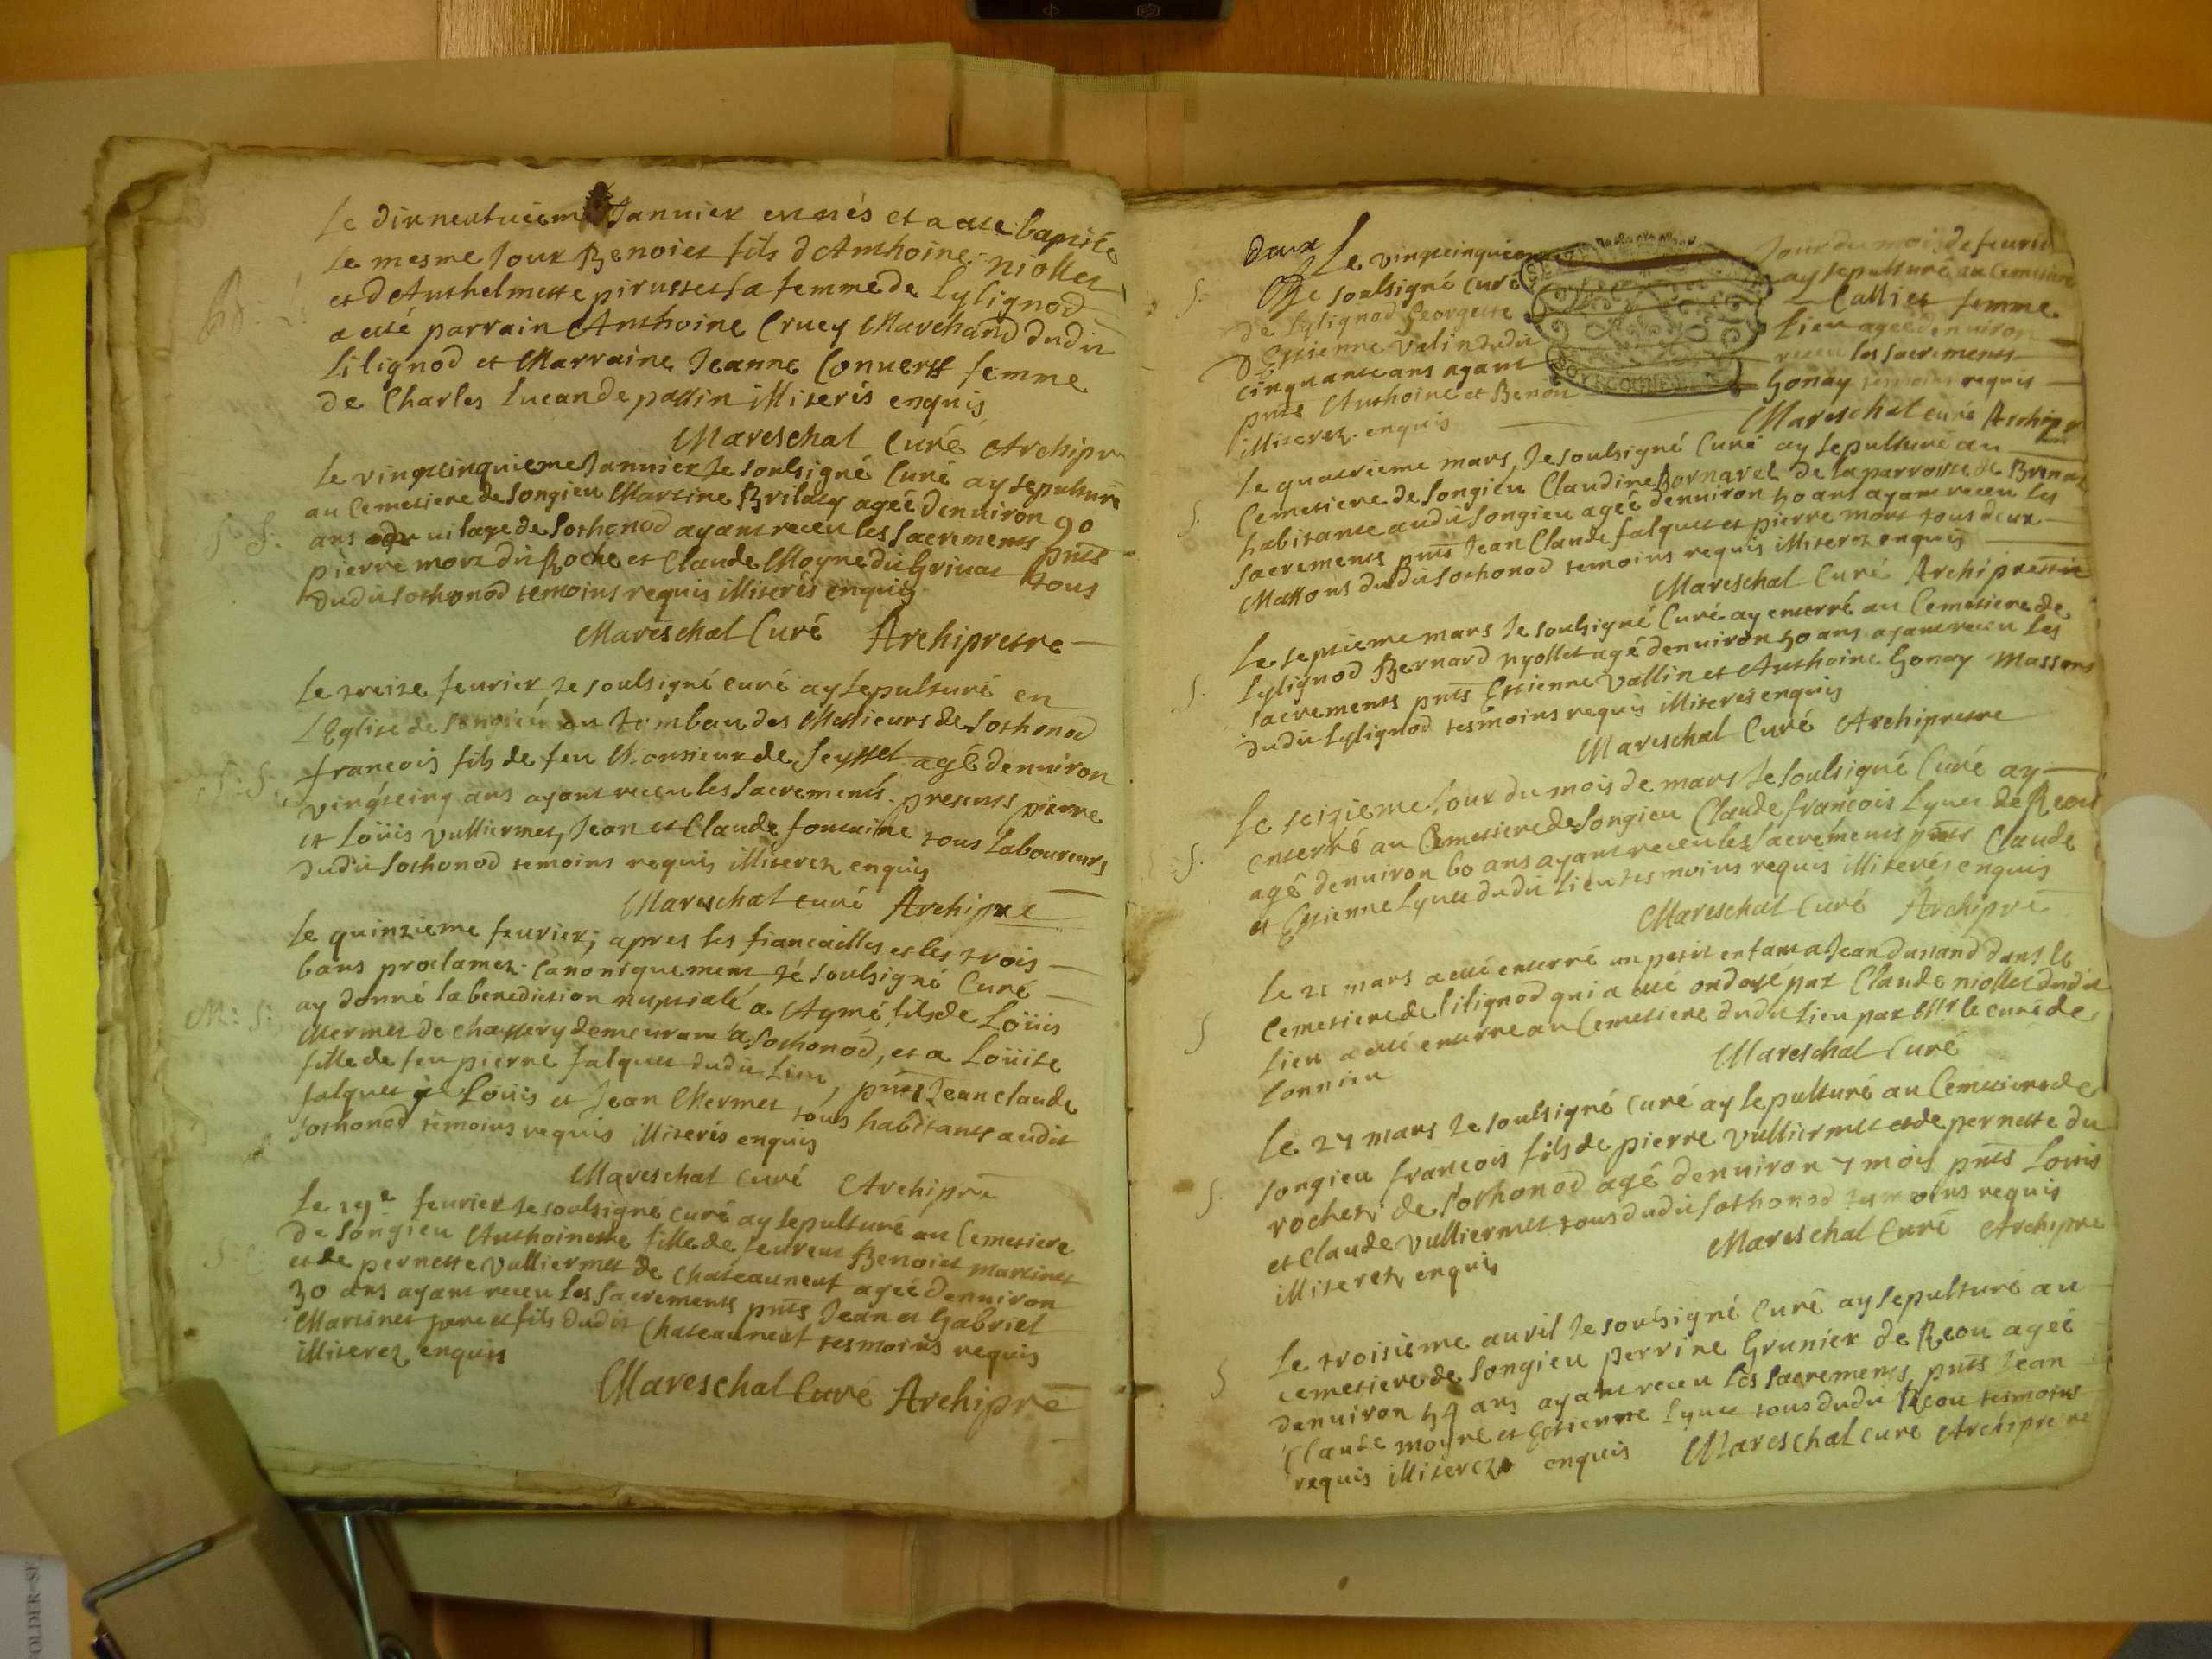 Le dixneufuieme Jannier est nés et a aue baptisé
le mesme Jour Benoiet fils d'Anthoine niollet
et d'Anthelmette pirusset sa femme de Lylignod
B.
a esté parrain Anthoine Cruey Marchand dudit
Lilignod et Marraine Jeanne Converss femme
de Charles Lucan de passin illiterés enquis
Mareschal Curé Archipr
Le vingtcinquieme Jannier Je soulsigné Curé ay sepulturé
au Cemetiere de Songieu Martine Brilley ageé denuiron 90
S. S.
ans uilage de Sothonod ayant receu les Sacrements pnts
pierre mort du Roche et Claude Moyne du Grinat tous
dudit Sothonod temoins requis illiterés enquis
Mareschal Curé Archiprestre
Le treize feurier Je soulsigné curé ay sepulturé en
L'Eglise de Songieu au tombau des Messieurs de Sothonod
S. S.
francois fils de feu Monsieur de Seyssel agé denuiron
vingtcinq ans ayant receu les Sacrements. presents pierre
et Loüis Vulliermet, Jean et Claude fontaine tous Laboureurs
dudit Sothonod temoins requis illiterez enquis
Mareschal curé Archipre
Le quinzieme feurier; apres les fiancailles et les trois
bans proclamez Canoniquement, Jé soulsigné Curé
ay donné la benediction nuptialé a Aymé fils de Loüis
M. S.
Mermet de Chassery demeurant a Sothonod, et a Loüise
fille de feu pierre falquet dudit Lieu, pnts Jean claude
falquet Loüis et Jean Mermet tous habitants audit
Sothonod temoins requis illiterés enquis
Mareschal Curé Archipre
Le 19e feurier Je soulsigné curé ay sepulturé au Cemetiere
de Songieu Anthoinette fille de Benoiet Martinet
et de pernette Vulliermet de Chateauneuf ageé denuiron
30 ans ayant receu les Sacrements pnts Jean et Gabriel
Martinet pere et fils dudit Chateauneuf tesmoins requis
illiterez enquis
Mareschal Curé Archipre
deux
Le vingtcinquieme Jour du mois de feurier
S.
Je soulsigné Curé ay sepulturé au Cemetiere
de Lylignod Georgette Callier femme
d'Estienne Valin dudit Lieu ageé denuiron
cinquante ans ayant receu les Sacrements
pnts Anthoine et Benoit Gonay temoins requis
illiterez enquis
Mareschal Curé Archipr
Le quatrieme mars, Je soulsigné Curé ay sepulturé au
S.
Cemetiere de Songieu Claudine Bornarel de la parroisse de Brenaz
habitante audit Songieu ageé denuiron 50 ans ayant receu les
Sacrements pnts Jean Claude falquet et pierre mort tous deux
Massons dudit Sothonod temoins requis illiterez enquis
Mareschal Curé Archiprestre
Le septieme mars Je soulsigné Curé ay enterré au Cemetiere de
S.
Lylignod Bernard nyollet agé denuiron 50 ans ayant receu les
Sacrements pnts Estienne Vallin et Anthoine Gonay Massons
dudit Lylignod tesmoins requis illiterés enquis
Mareschal Curé Archiprestre
Le seizieme Jour du mois de mars Je soulsigné Curé ay
S.
enterré au Cemetiere de Songieu Claude françois Lyuet de Reou
agé denuiron 60 ans ayant receu les Sacrements pnts Claude
et Estienne Lyuet dudit Lieu tesmoins requis illiterés enquis
Mareschal Curé Archipre
Le 21 mars a esté enterré un petit enfant a Jean dunand dans le
S
Cemetiere de Lilignod qui a esté ondoyé par Claude niollet dudit
Lieu a esté enterre au Cemetiere dudit Lieu par Mr le curé de
Lonnieu
Mareschal Curé
Le 27 mars Je soulsigné curé ay sepulturé au Cemetiere de
S.
Songieu francois fils de pierre Vulliermet et de pernette du
rochet de Sothonod agé denuiron 7 mois pnts Loüis
et Claude Vulliermet tous dudit Sothonod tesmoins requis
illiterez enquis
Mareschal Curé Archipre
Le troisieme auril Je soulsigné Curé ay sepulturé au
S
Cemetiere de Songieu perrine Grunier de Reou ageé
denuiron 54 ans ayant receu les Sacrements, pnts Jean
Claude moyne et Estienne Lyuet tous dudit Reou tesmoins
requis illiterez enquis Mareschal curé Archiprestre